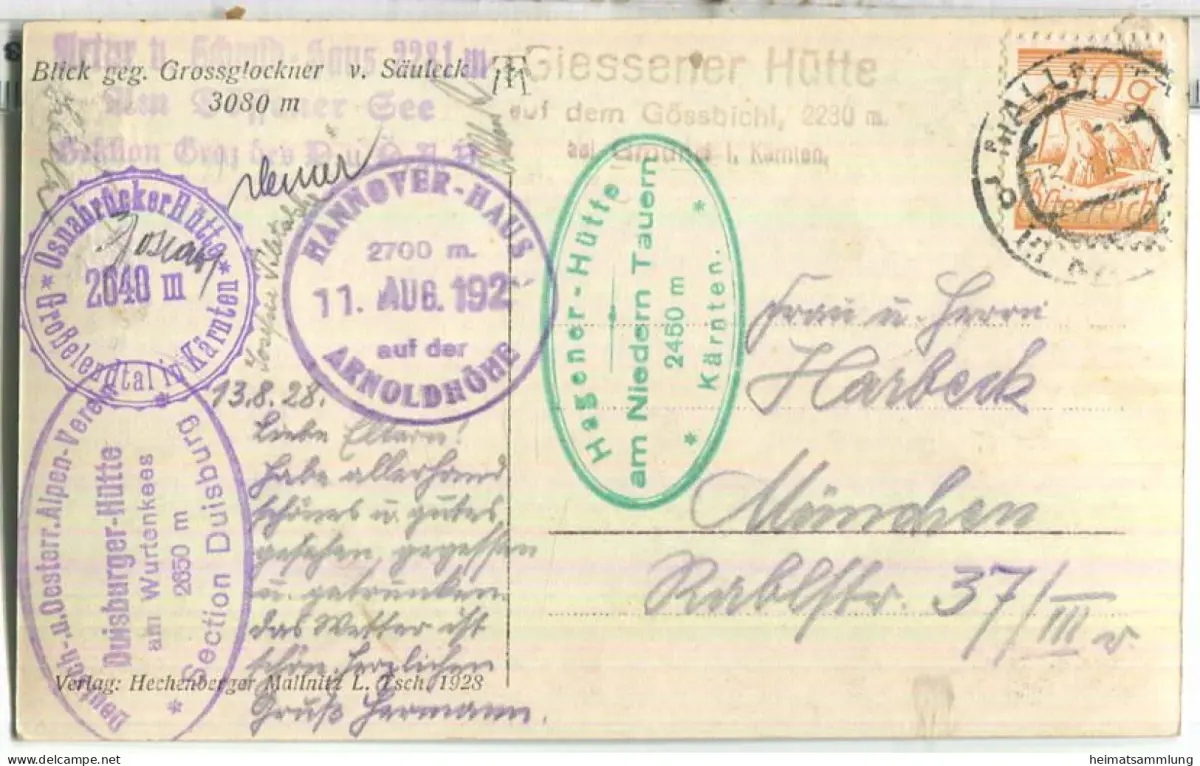 Artur v. Schmid-Haus 2281 m
am Dössner See
Sektion Graz des D. u. Ö. A. V.
Blick geg. Grossglockner v. Säuleck
3080 m
Giessener Hütte
auf dem Gössbichl, 2230 m.
bei Gmünd i. Kärnten,
10g
Österreich
Osnabrücker Hütte
2040 m
* Großelendtal in Kärnten *
HANNOVER-HAUS
2700 m.
11. AUG. 192
auf der
ARNOLDHÖHE
Hagener-Hütte
am Niedern Tauern
2450 m
* Kärnten. *
Deutsch-u. Oesterr. Alpen-Verein
Duisburger-Hütte
am Wurtenkees
2650 m
* Section Duisburg *
13.8.28.
Liebe Eltern!
habe allerhand
schönes u. gutes
gesehen, gegessen
u. getrunken
das Wetter ist
schön, herzlichen
Gruß Hermann.
Frau u. Herrn
Harbeck
München
Rablstr. 37/III r.
Verlag: Hechenberger Mallnitz L. Tsch. 1928
heimatsammlung